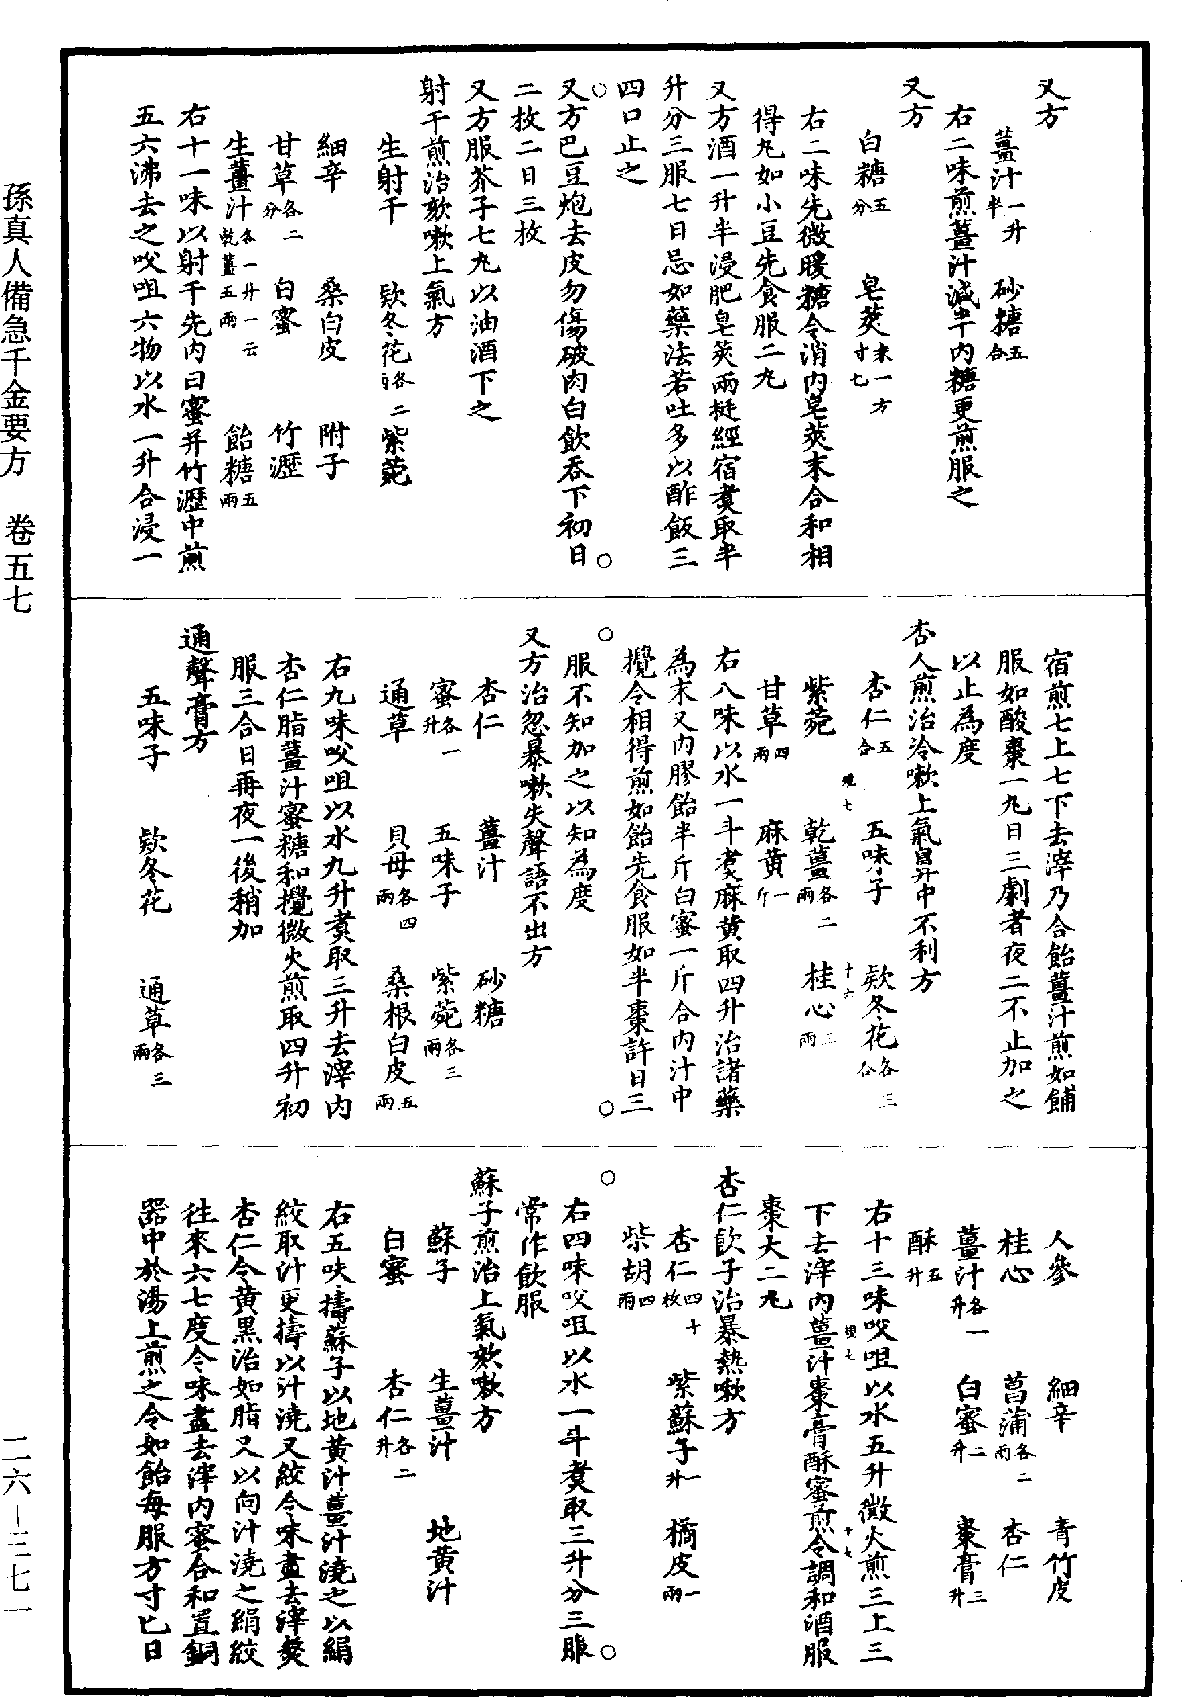 又方
薑汁一升半　砂糖五合
右二味煎薑汁減半内糖更煎服之
又方
白糖五分　皂莢末一方寸七
右二味先微暖糖令消内皂莢末合和相
得丸如小豆先食服二丸
又方酒一升半浸肥皂莢兩挺經宿煑取半
升分三服七日忌如藥法若吐多以酢飯三
四口止之
又方巴豆炮去皮勿傷破肉白飲吞下初日
二枚二日三枚
又方服芥子七丸以油酒下之
射干煎治欬嗽上氣方
生射干　欵冬花各二兩　紫菀
細辛　桑白皮　附子
甘草各二分　白蜜　竹瀝
生薑汁各一升一云乾薑五兩　飴糖五兩
右十一味以射干先内白蜜并竹瀝中煎
五六沸去之㕮咀六物以水一升合浸一
宿煎七上七下去滓乃合飴薑汁煎如餔
服如酸棗一丸日三劇者夜二不止加之
以止為度
杏人煎治冷嗽上氣鼻中不利方
杏仁五合　五味子　欵冬花各三合
紫菀　乾薑各二兩　桂心三兩
甘草四兩　麻黄一斤
右八味以水一斗煑麻黄取四升治諸藥
為末又内膠飴半斤白蜜一斤合内汁中
攪令相得煎如飴先食服如半棗許日三
服不知加之以知為度
又方治忽暴嗽失聲語不出方
杏仁　薑汁　砂糖
蜜各一升　五味子　紫菀各三兩
通草　貝母各四兩　桑根白皮五兩
右九味㕮咀以水九升煑取三升去滓内
杏仁脂薑汁蜜糖和攪微火煎取四升初
服三合日再夜一後稍加
通聲膏方
五味子　欵冬花　通草各三兩
人參　細辛　青竹皮
桂心　菖蒲各二兩　杏仁
薑汁各一升　白蜜二升　棗膏三升
酥五升
右十三味㕮咀以水五升微火煎三上三
下去滓内薑汁棗膏酥蜜煎令調和酒服
棗大二丸
杏仁飲子治暴熱嗽方
杏仁四十枚　紫蘇子一升　橘皮一兩
柴胡四兩
右四味㕮咀以水一斗煑取三升分三服
常作飲服
蘇子煎治上氣欬嗽方
蘇子　生薑汁　地黄汁
白蜜　杏仁各二升
右五味擣蘇子以地黄汁薑汁澆之以絹
絞取汁更擣以汁澆又絞令味盡去滓熬
杏仁令黄黑治如脂又以向汁澆之絹絞
往來六七度令味盡去滓内蜜合和置銅
器中於湯上煎之令如飴每服方寸匕日
孫真人備急千金要方　卷五七
二六—三七一